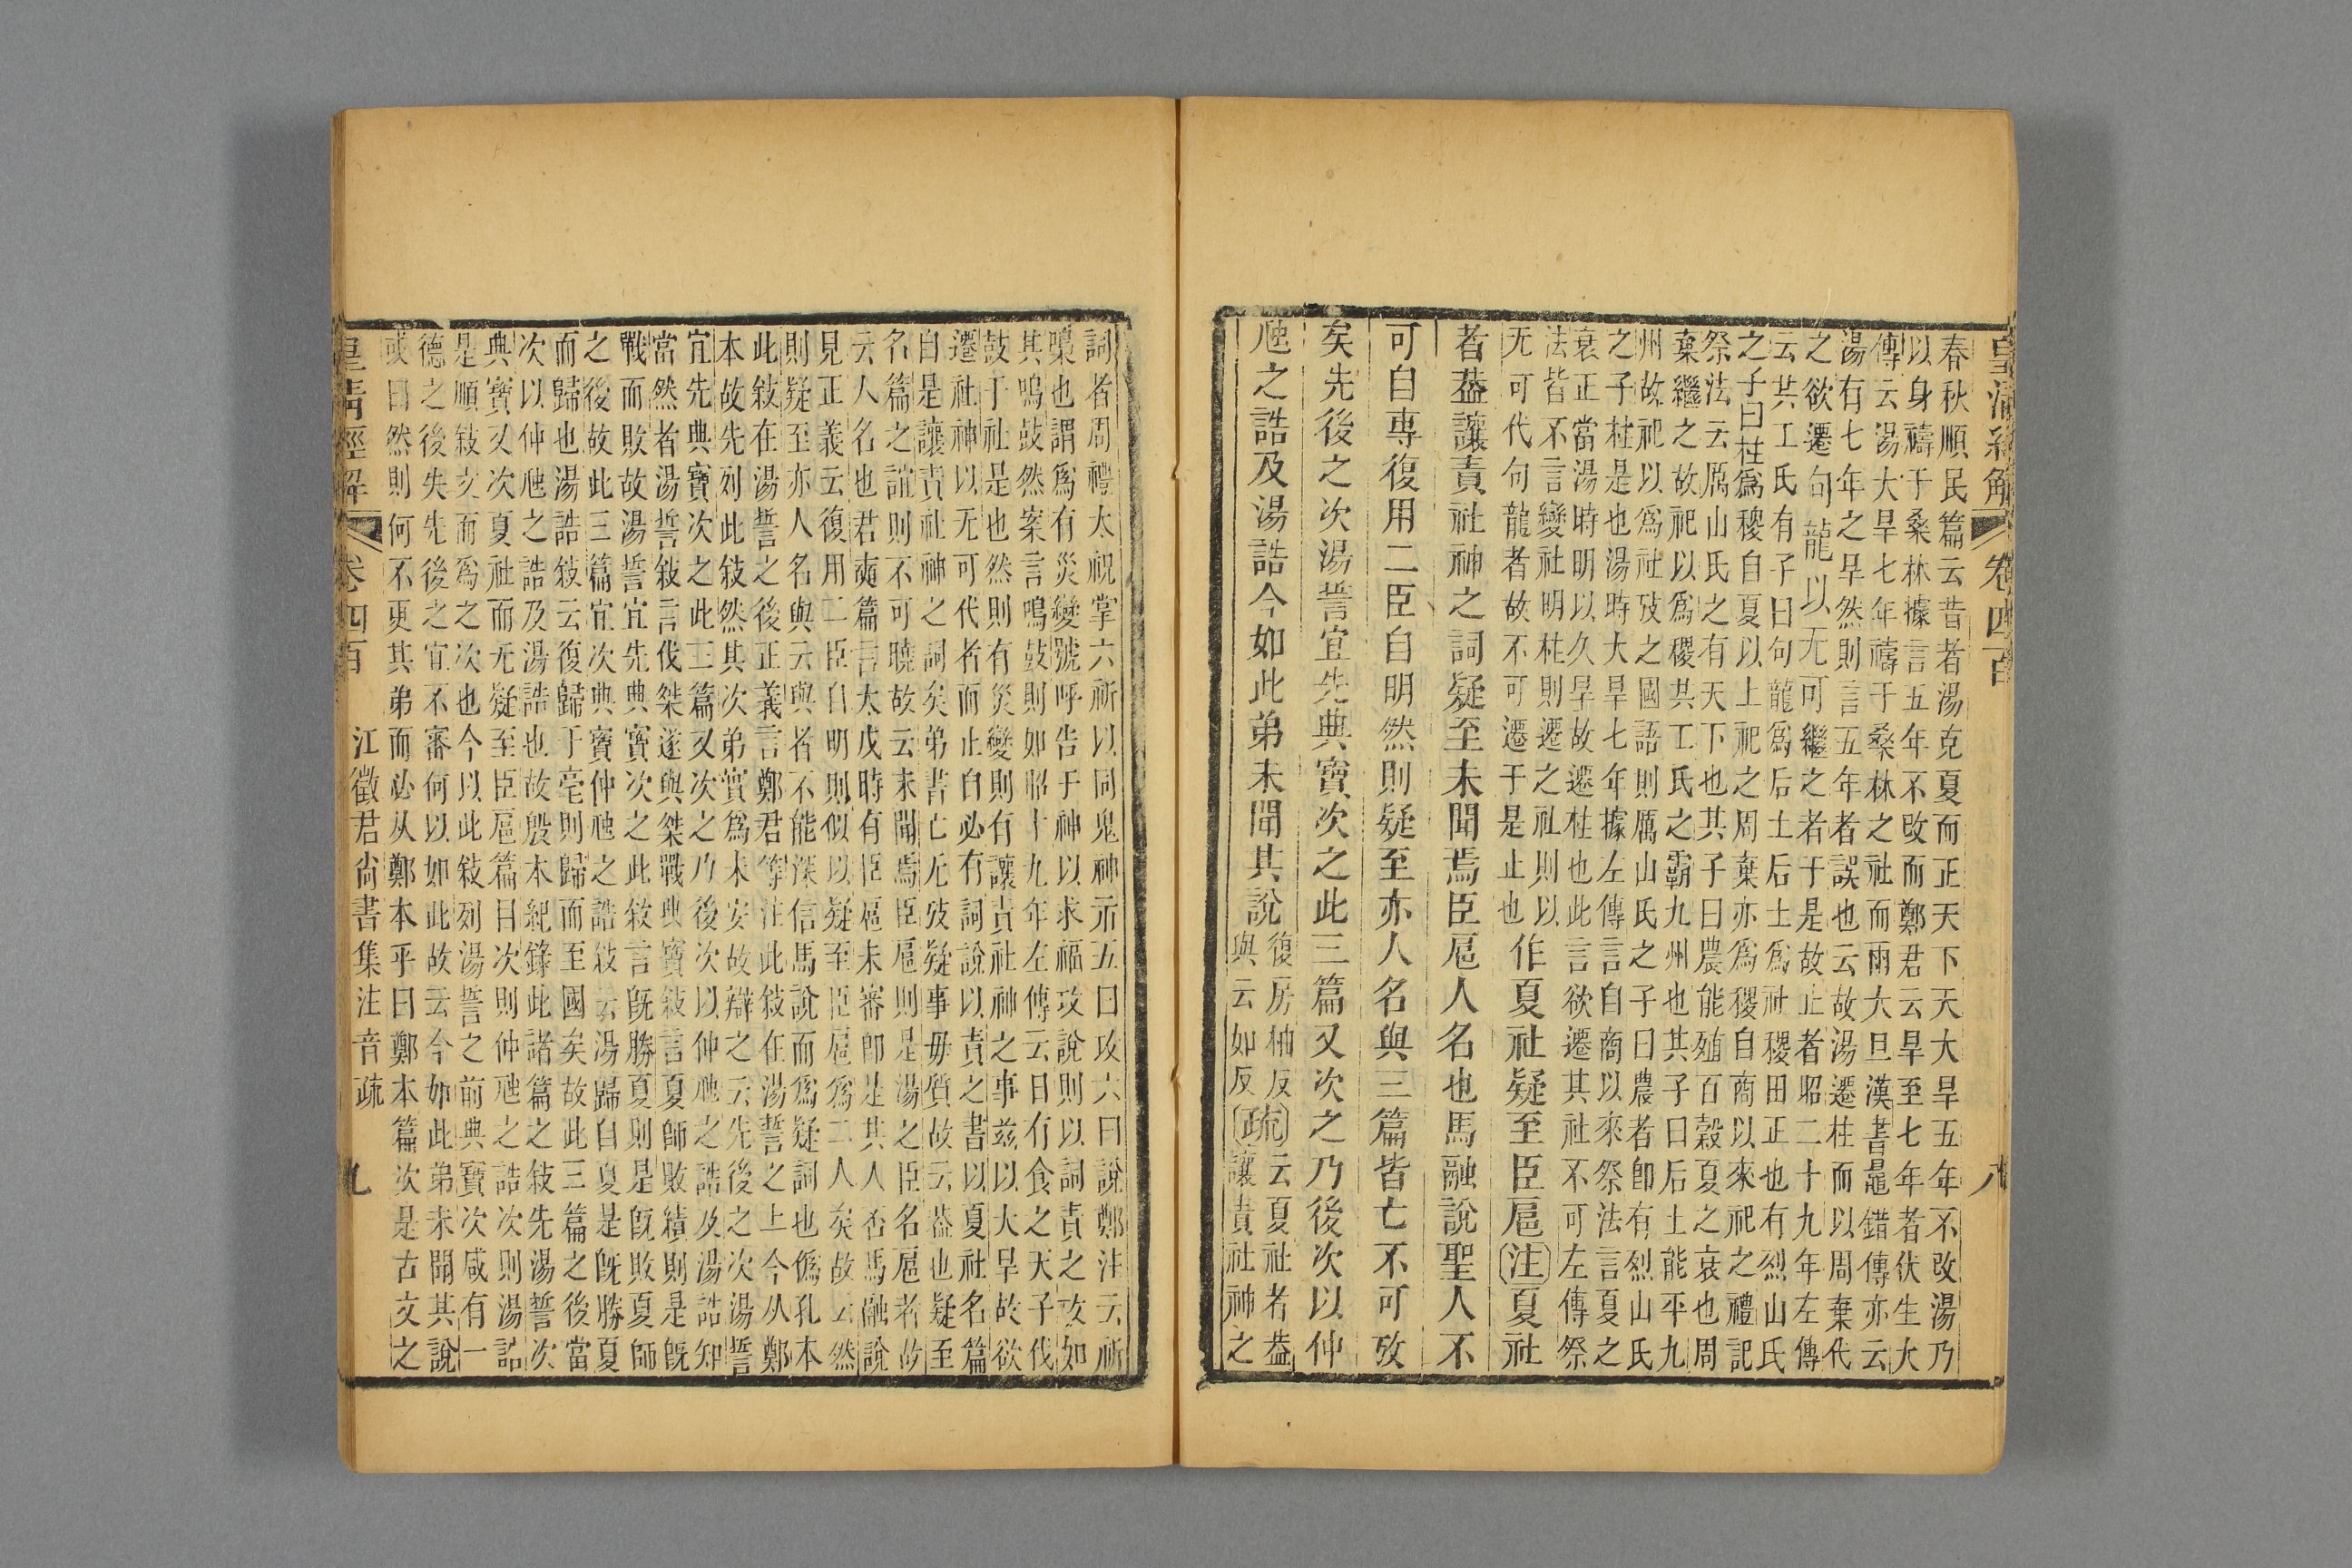 皇淸經解 卷四百 八
春秋順民篇云昔者湯克夏而正天下天大旱五年不攺湯乃
以身禱于桑林據言五年不攺而鄭君云旱至七年者伏生大
傳云湯大旱七年禱于桑林之社而雨大旦漢書鼂錯傳亦云
湯有七年之旱然則言五年者誤也云故湯遷柱而以周棄代
之欲遷句龍以无可繼之者于是故止者昭二十九年左傳
云共工氏有子曰句龍爲后土后土爲社稷田正也有烈山氏
之子曰柱爲稷自夏以上祀之周棄亦爲稷自商以來祀之禮記
祭法云厲山氏之有天下也其子曰農能殖百穀夏之衰也周
棄繼之故祀以爲稷共工氏之霸九州也其子曰后土能平九
州故祀以爲社攷之國語則厲山氏之子曰農者卽有烈山氏
之子柱是也湯時大旱七年據左傳言自商以來祭法言夏之
衰正當湯時明以久旱故遷柱也此言欲遷其社不可左傳祭
法皆不言變社明柱則遷之社則以
无可代句龍者故不可遷于是止也
作夏社疑至臣扈注夏社
者葢讓責社神之詞疑至未聞焉臣扈人名也馬融說聖人不
可自專復用二臣自明然則疑至亦人名與三篇皆亡不可攷
矣先後之次湯誓宜先典寶次之此三篇又次之乃後次以仲
虺之誥及湯誥今如此弟未聞其說
復房柚反
與云如反
疏
云夏社者葢
讓責社神之
詞者周禮太祝掌六祈以同鬼神示五曰攻六曰說鄭注云祈
㗥也謂爲有災變號呼告于神以求福攻說則以詞責之攻如
其鳴鼓然案言鳴鼓則如昭十九年左傳云日有食之天子伐
鼓于社是也然則有災變則有讓責社神之事兹以大旱故欲
遷社神以无可代者而止自必有詞說以責之書以夏社名篇
自是讓責社神之詞矣弟書亡无攷疑事毋質故云葢也疑至
名篇之誼則不可曉故云未聞焉臣扈則是湯之臣名扈者故
云人名也君奭篇言太戊時有臣扈未審卽是其人否馬融說
見正義云復用二臣自明則似以疑至臣扈爲二人矣故云然
則疑至亦人名與云與者不能深信馬說而爲疑詞也僞孔本
此敍在湯誓之後正義言鄭君等注此敍在湯誓之上今从鄭
本故先列此敍然其次弟實爲未安故辯之云先後之次湯誓
宜先典寶次之此三篇又次之乃後次以仲虺之誥及湯誥知
當然者湯誓敍言伐桀遂與桀戰典寶敍言夏師敗績則是旣
戰而敗故湯誓宜先典寶次之此敍言旣勝夏則是旣敗夏師
之後故此三篇宜次典寶仲虺之誥敍云湯歸自夏是旣勝夏
而歸也湯誥敍云復歸于亳則歸而至國矣故此三篇之後當
次以仲虺之誥及湯誥也故殷本紀錄此諸篇之敍先湯誓次
典寶又次夏社而无疑至臣扈篇目次則仲虺之誥次則湯誥
是順敍文而爲之次也今以此敍列湯誓之前典寶次咸有一
德之後失先後之宜不審何以如此故云今如此弟未聞其說
或曰然則何不更其弟而必从鄭本乎曰鄭本篇次是古文之
皇淸經解 卷四百 江徵君尙書集注音疏 九